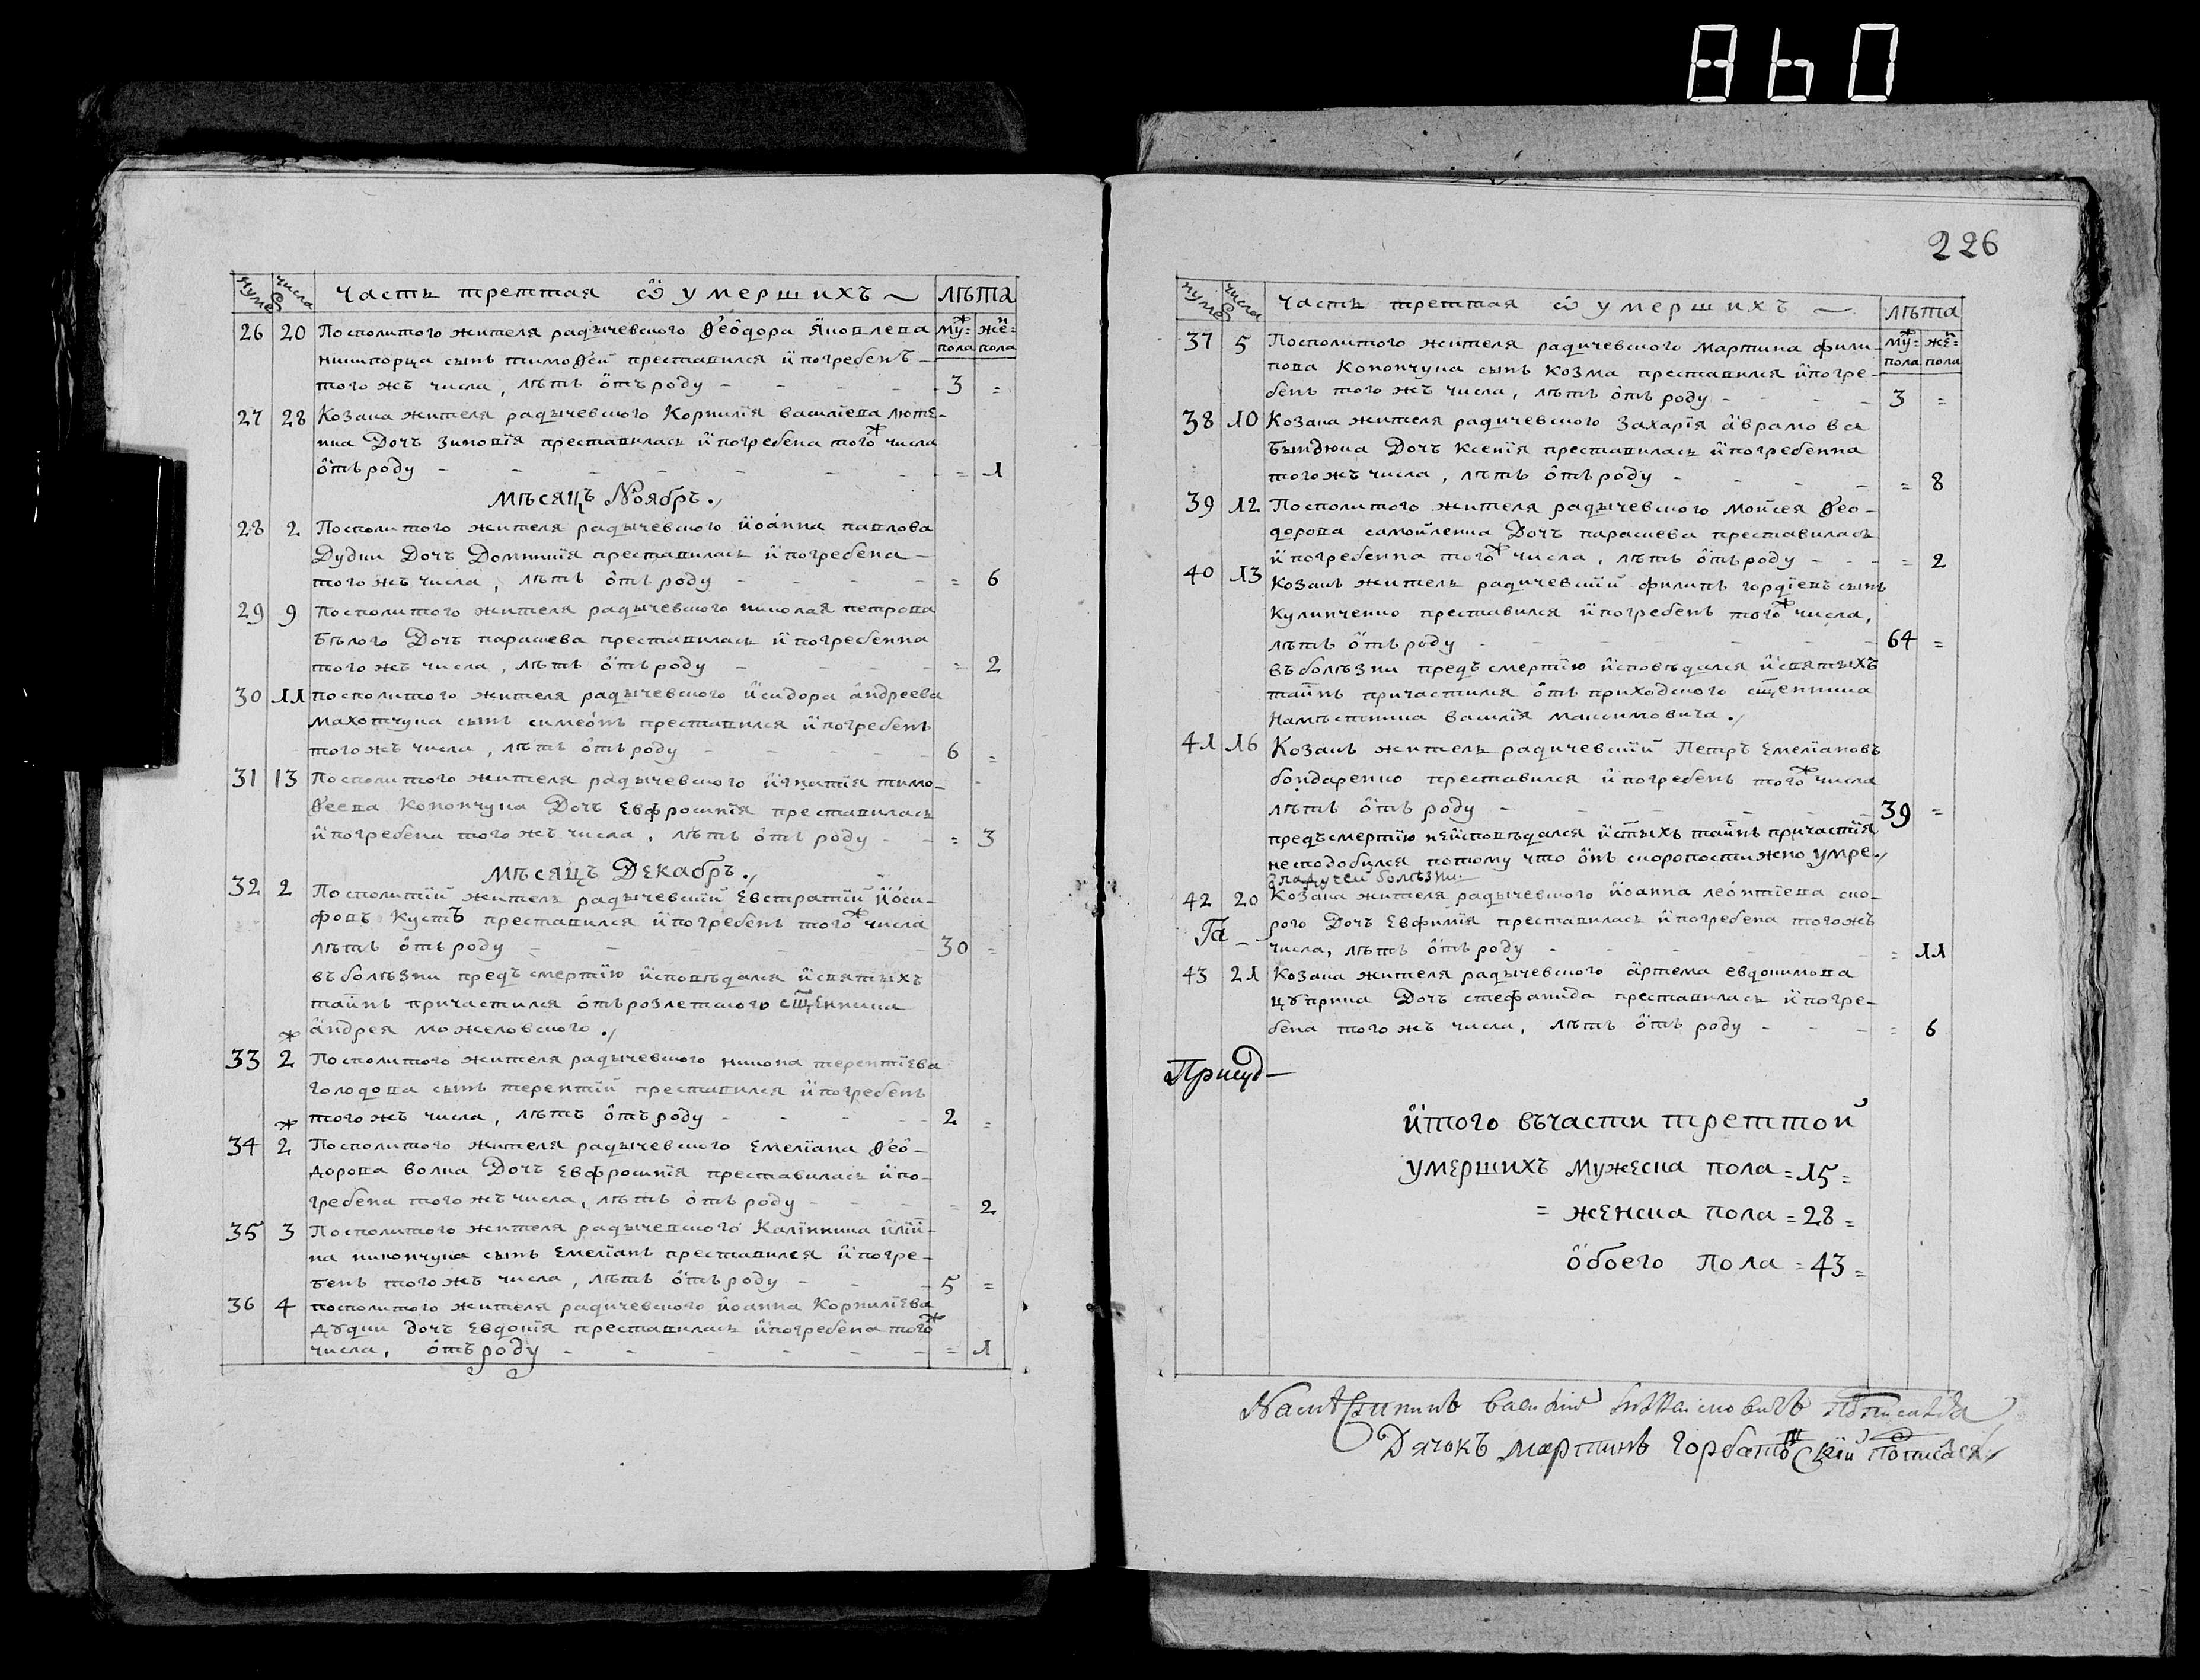 860
нумеръ числа часть треттая ѡ умершихъ лѣта
муж= жен=
пола пола
26 20 Посполитого жителя радычевского Ѳеодора Яковлева
ничипорца сынъ тимоѳей преставился и погребенъ
того жъ числа, лѣтъ отъ роду - - - - 3 =
27 28 Козака жителя радычевского Корнилїя василїева люте-
нка Дочъ зиновїя преставилась и погребена того ж числа
отъ роду - - - - = 1
мѣсяцъ Ноябръ.
28 2 Посполитого жителя радычевского иоанна павлова
Дудки Дочъ Домникїя преставилась и погребена
того жъ числа, лѣтъ отъ роду - - - = 6
29 9 Посполитого жителя радычевского николая петрова
бѣлого Дочъ параскева преставилась и погребенна
того жъ числа, лѣтъ отъ роду - - - = 2
30 11 посполитого жителя радычевского исидора андреева
махотчука сынъ симеонъ преставился и погребенъ
того жъ числа, лѣтъ отъ роду - - - 6 =
31 13 Посполитого жителя радычевского игнатїя тимо-
ѳеева Конончука Дочъ Евфросинїя преставилась
и погребена того жъ числа, лѣтъ отъ роду - - = 3
мѣсяцъ Декабръ.
32 2 Посполитїй житель радычевскїй Евстратїй иоси-
фовъ Кустъ преставился и погребенъ того ж числа
лѣтъ отъ роду - - - - 30 =
въ болѣзни предъ смертїю исповѣдался и святыхъ
таинъ причастился отъ розлетского сщенника
андрея можеловского.
33 2 Посполитого жителя радычевского никона терентїева
голодова сынъ терентїй преставился и погребенъ
того жъ числа, лѣтъ отъ роду - - - 2 =
34 2 Посполитого жителя радычевского Емелїана Ѳео-
дорова волка Дочъ Евфросинїя преставилась и по-
гребена того жъ числа, лѣтъ отъ роду - - = 2
35 3 Посполитого жителя радычевского Калїнника илїи-
на никончука сынъ Емелїанъ преставился и погре-
бенъ того жъ числа, лѣтъ отъ роду - - 5 =
36 4 посполитого жителя радичевского иоанна Корнилїева
дудки дочъ Евдокїя преставилась и погребена того ж
числа, отъ роду - - - - = 1
226
нумеръ числа часть треттая ѡ умершихъ лѣта
муж= жен=
пола пола
37 5 Посполитого жителя радичевского мартина фили-
пова Конончука сынъ Козма преставился и погре-
бенъ того жъ числа, лѣтъ отъ роду - - - 3 =
38 10 Козака жителя радичевского Захарїя аврамовся
Бындюка Дочъ Ксенїя преставилась и погребенна
того жъ числа, лѣтъ отъ роду - - - = 8
39 12 Посполитого жителя радычевского моисея Ѳео-
дорова самойленка Дочъ параскева преставилась
и погребенна того ж числа, лѣтъ отъ роду - - = 2
40 13 Козакъ житель радичевскїй филипъ гордїевъ сынъ
Кулинченко преставился и погребенъ того ж числа,
лѣтъ отъ роду - - - - 64 =
въ болѣзни предъ смертїю исповѣдался и святыхъ
таинъ причастился отъ приходского сщенника
Намѣстника василїя максимовича.
41 16 Козакъ житель радичевскїй Петръ Емелїановъ
бондаренко преставился и погребенъ того ж числа
лѣтъ отъ роду - - - - 39 =
предъ смертїю неисповѣдался и стыхъ таинъ причастїя
несподобился потому что онъ скоропостижно умре.
з падучей болѣзни
42 20 Козака жителя радычевского иоанна леонтїева ско-
рого Дочъ Евфимїя преставилась и погребена того жъ
числа, лѣтъ отъ роду - - - = 11
43 21 Козака жителя радычевского артема евдокимова
цуприка Дочъ стефанида преставилась и погре-
бена того жъ числа, лѣтъ отъ роду - - - = 6
итого въ части треттой
умершихъ мужеска пола = 15 =
= женска пола = 28 =
обоего пола = 43 =
Намѣстникъ василий Максимовичъ подписался
Дячокъ мартинъ горбатовскїй подписался